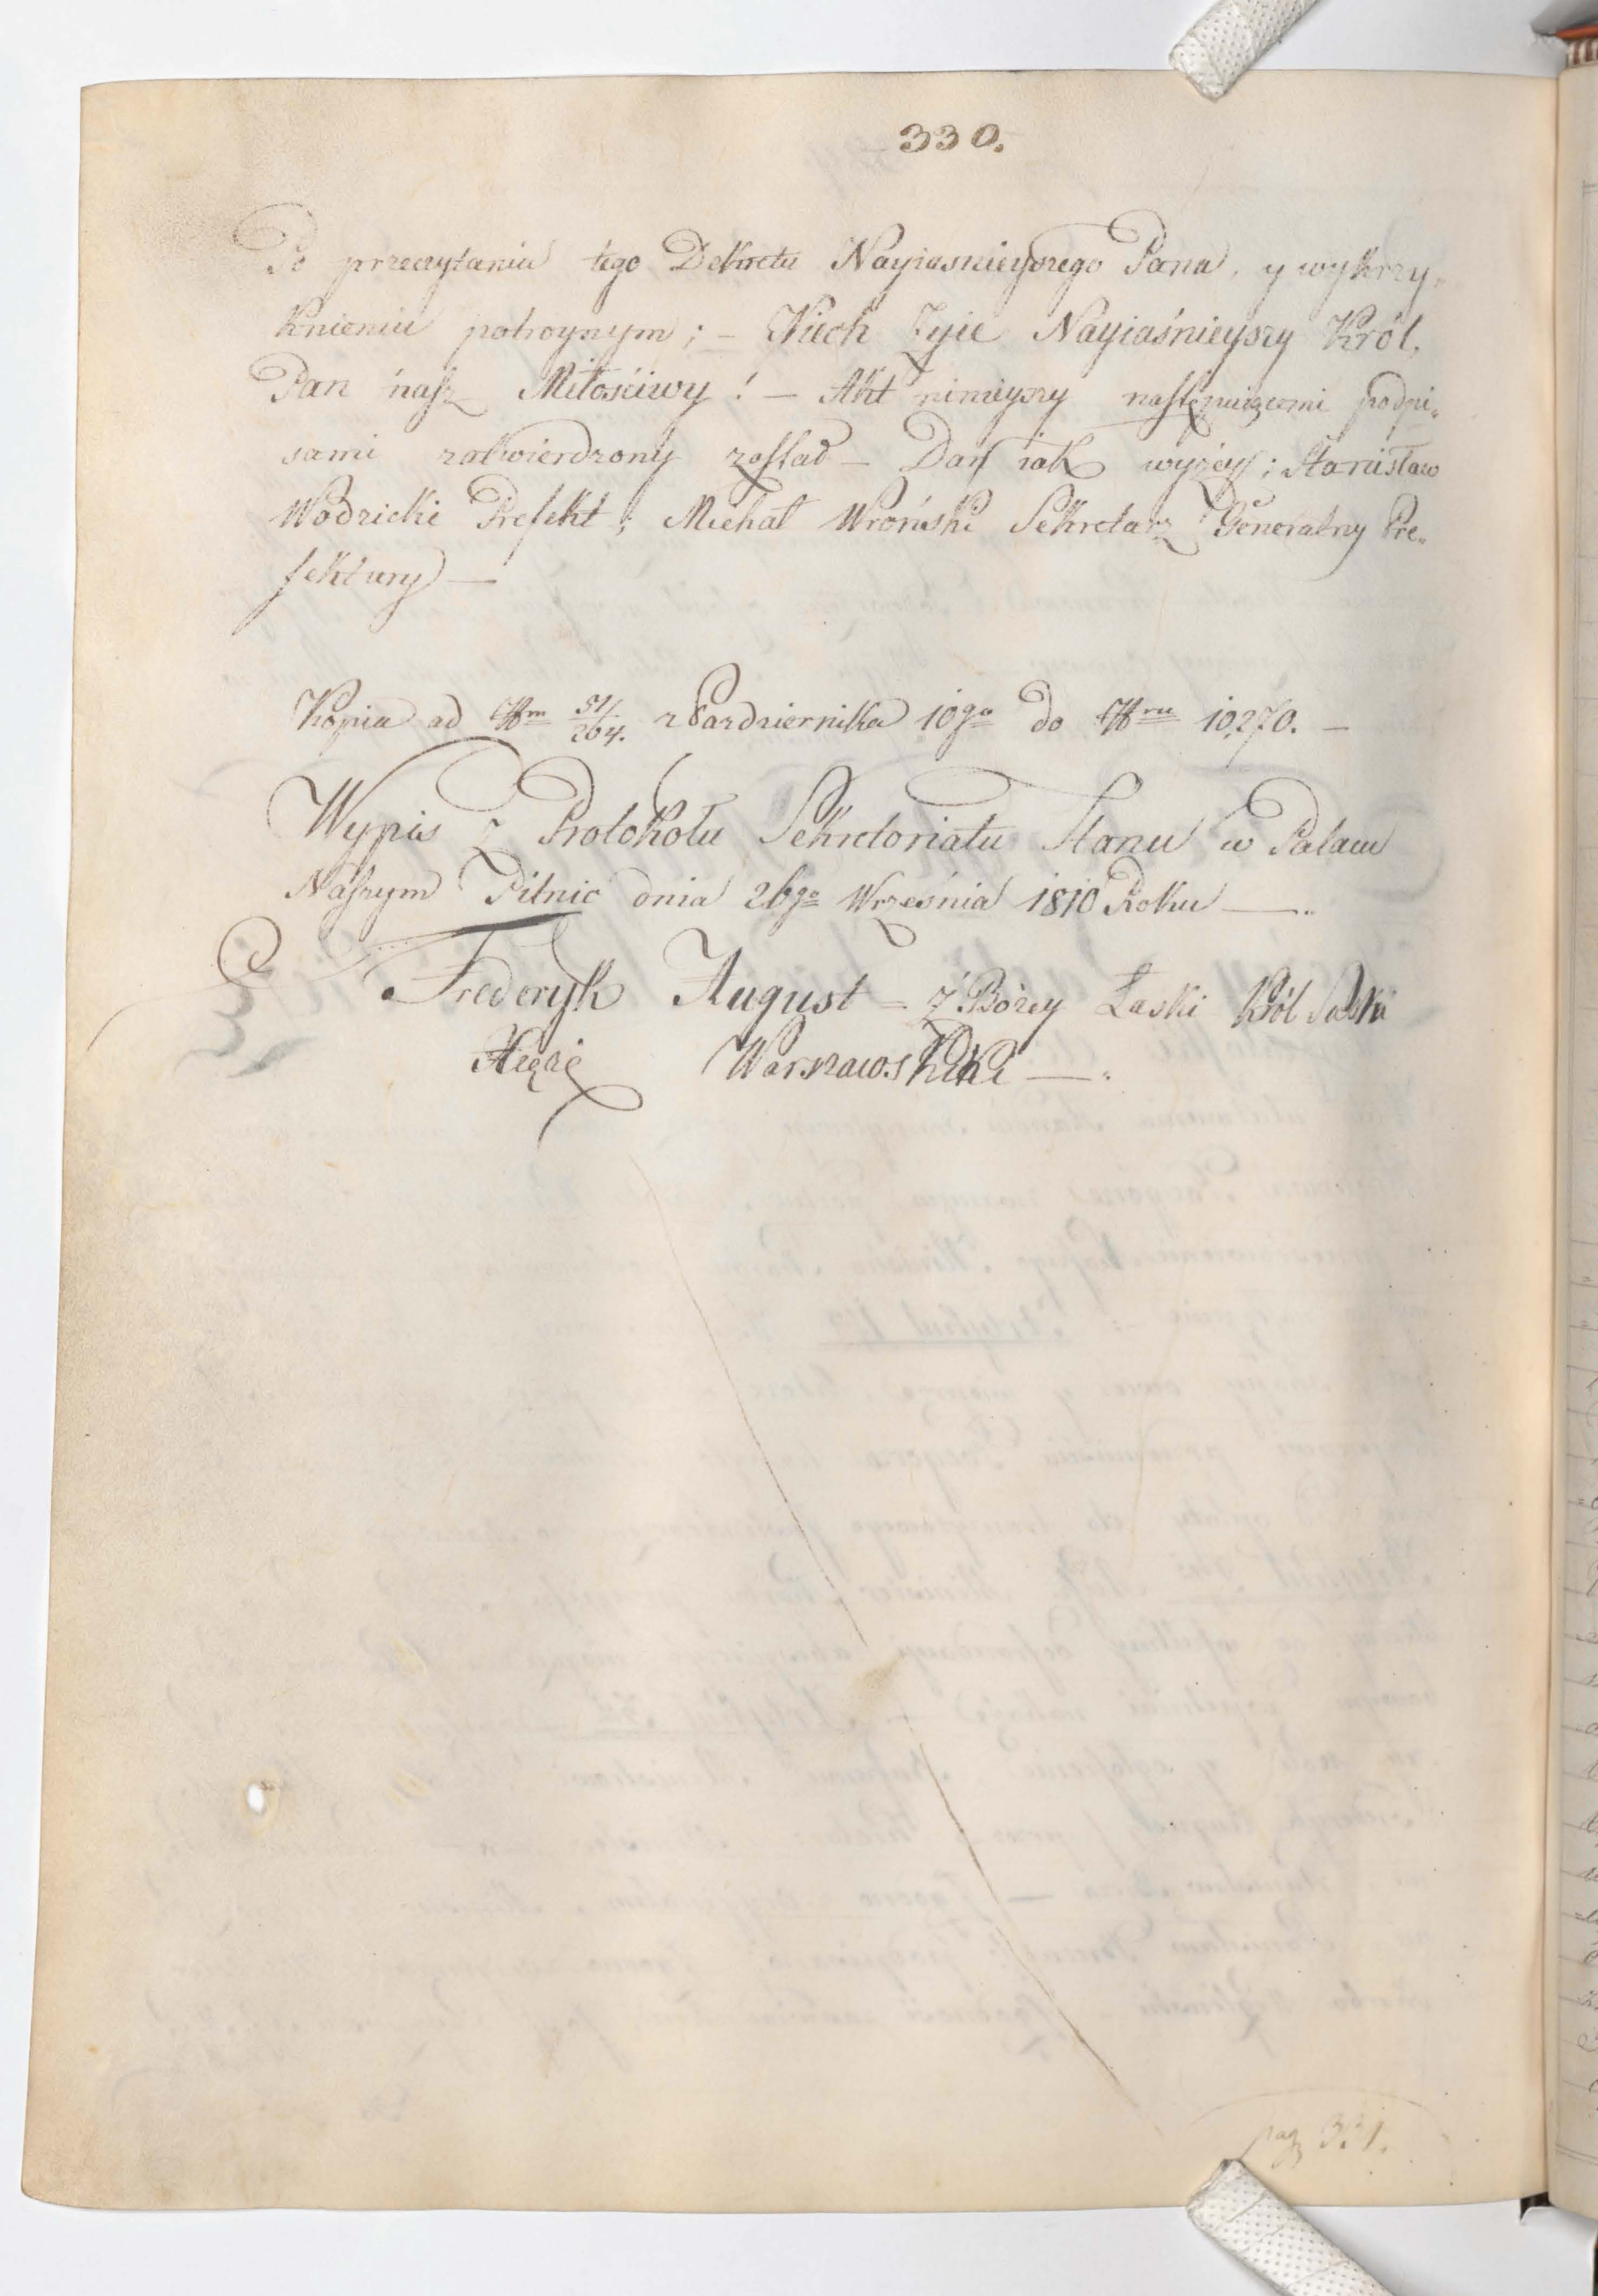 330.
Po przeczytaniu tego Dekretu Nayiasnieyszego Pana, y wykrzy„
knieniu potroynym; – Niech Zyie Nayiaśnieyszy Król,
Pan nasz Miłościwy! – Akt ninieyszy następuiącemi podpi„
sami zatwierdzony został – Dan iak wyżey; Stanisław
Wodzicki Prefekt; Michał Wroński Sekretarz Generalny Pre„
fektury —
Kopia ad Nrm 51/264. z Pazdziernika 10go do Nru 10,270. –
Wypis z Protokołu Sekretoriatu Stanu w Pałacu
Naszym Pilnic dnia 26go Września 1810 Roku —
Fryderyk August – z Bożey Łaski Król Saski
Xiąże Warszawski —
pag 331.